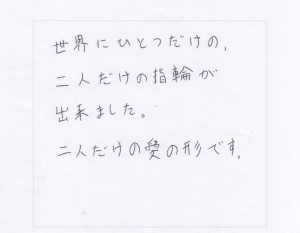 世界にひとつだけの、
二人だけの指輪が
出来ました。
二人だけの愛の形です。